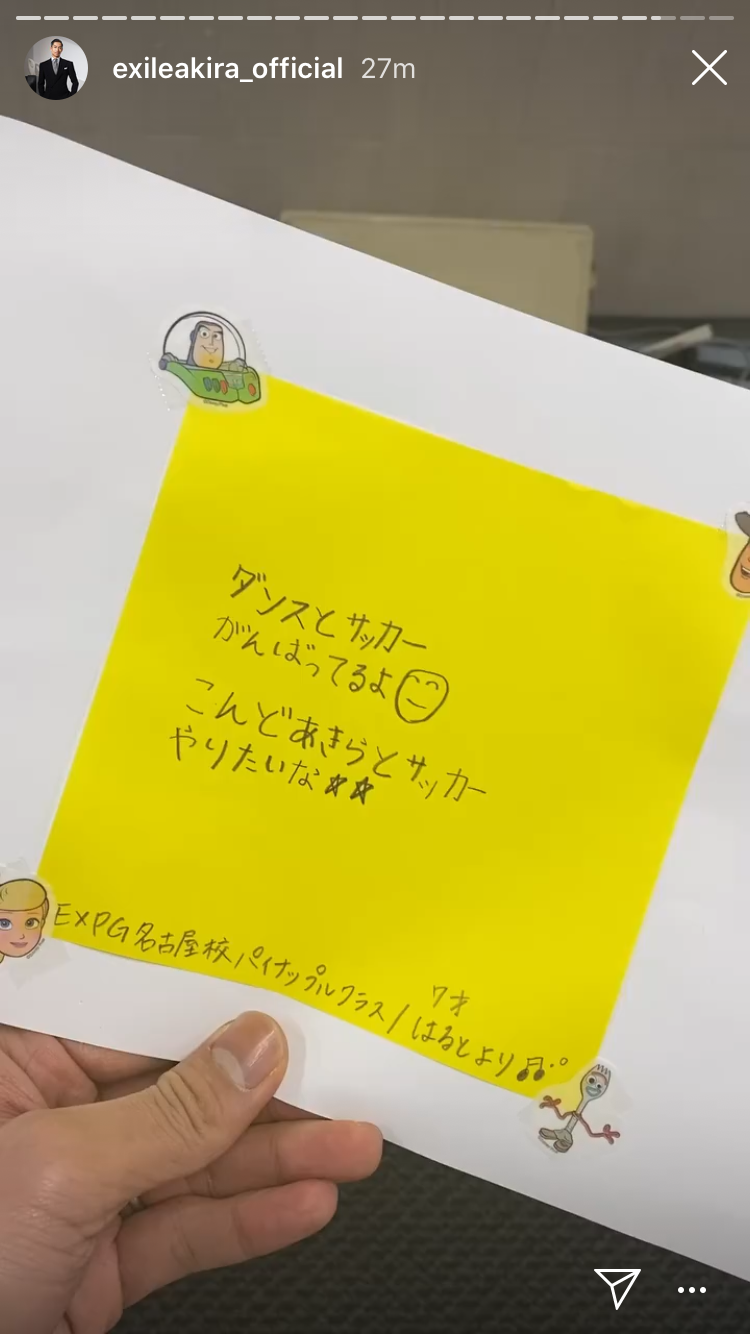 exileakira_official 27m
ダンスとサッカー
がんばってるよ
こんどあきらとサッカー
やりたいな☆☆
EXPG名古屋校パイナップルクラス/はるとより♫
7才